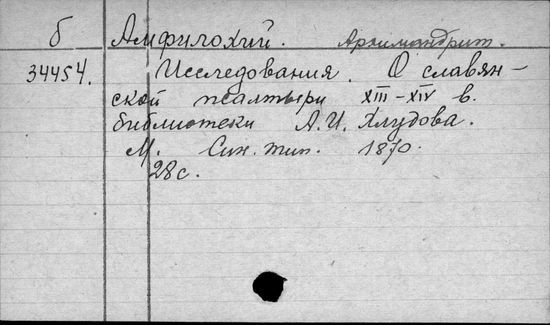 б Амфилохий. Архимандрит.
34454. Исследования. О славян-
ской псалтыри XIII-XIV в.
библиотеки А.И. Хлудова.
М. Син. тип. 1870.
28 с.